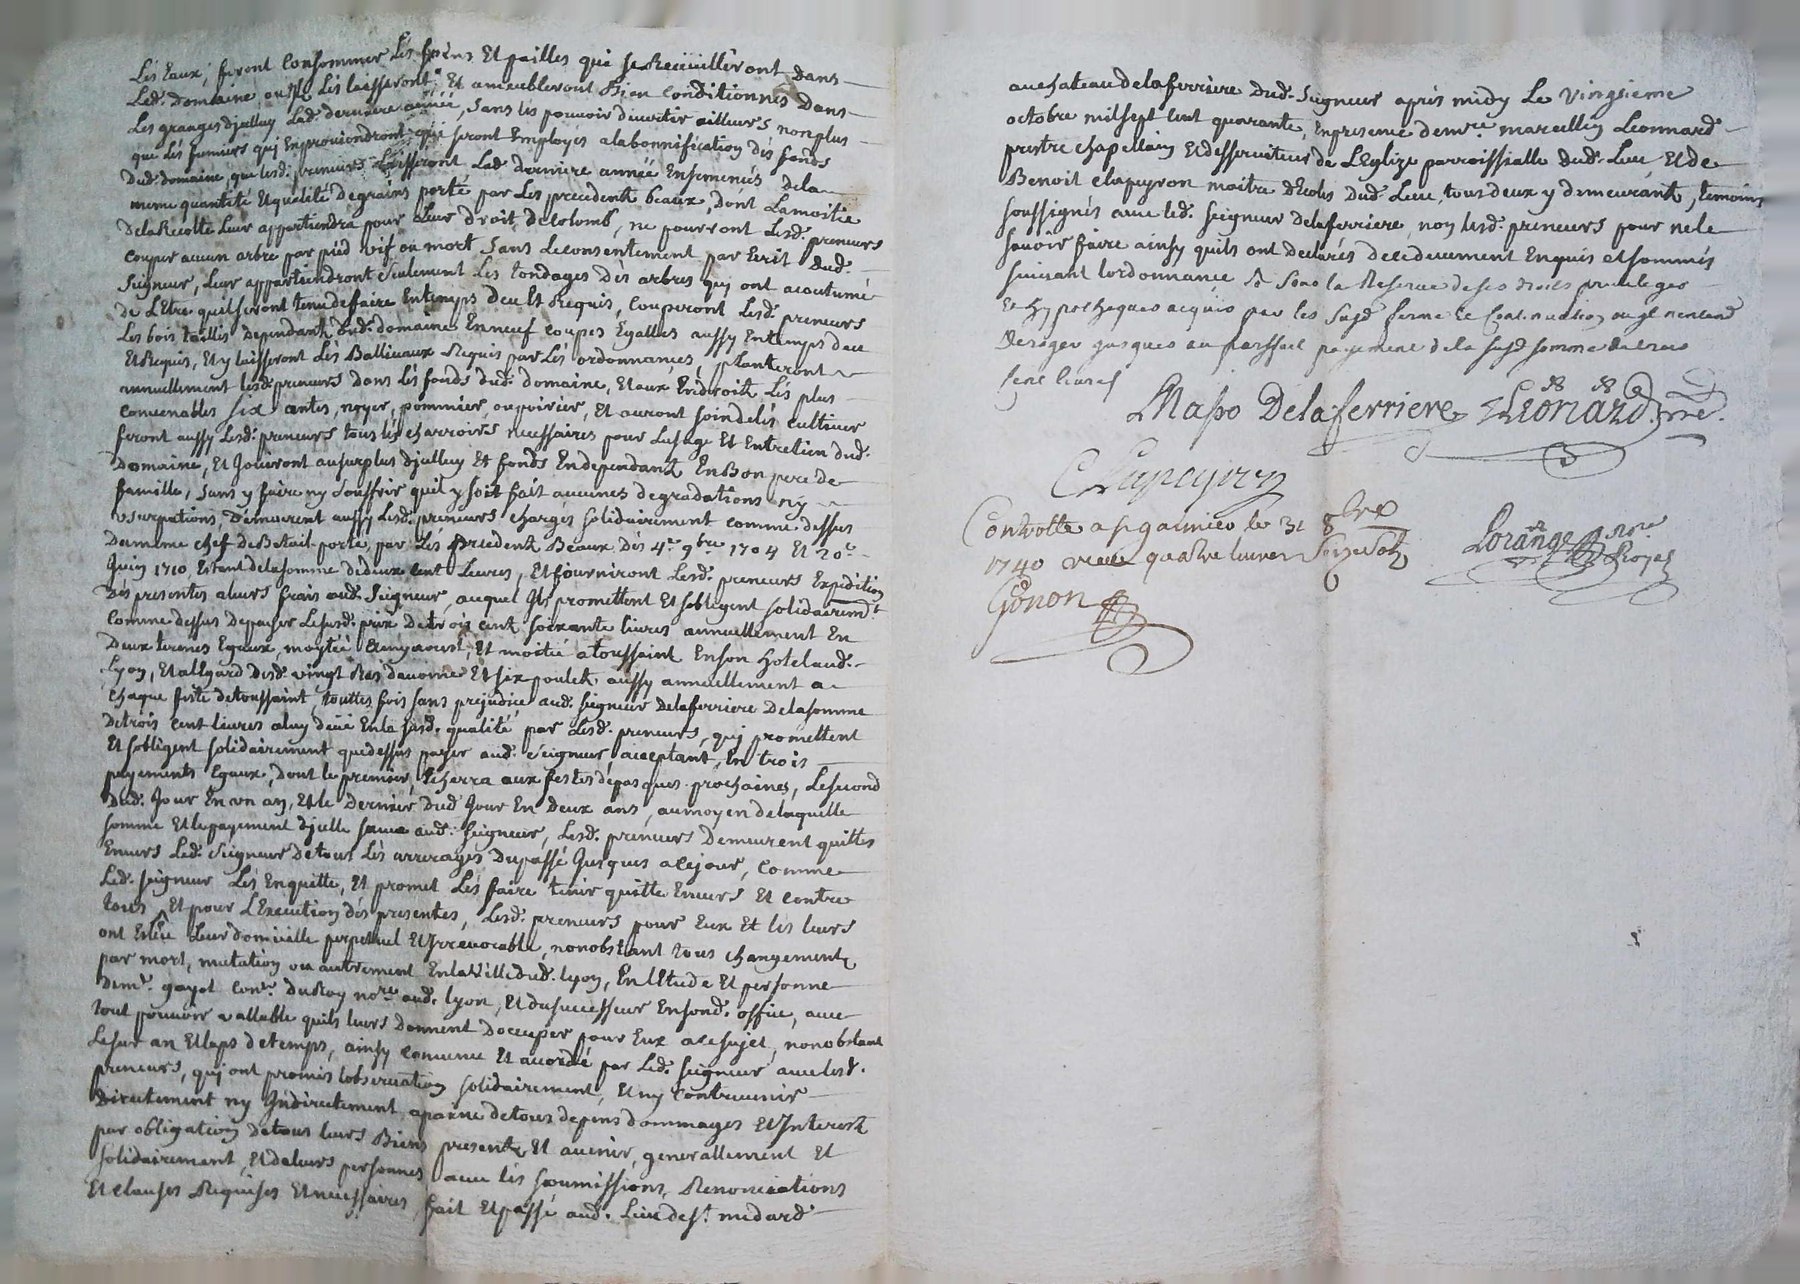 Les Eaux, feront Consommer Les foins Et pailles qui se Recüeilleront dans
Led. Domaine ou ils Les laisseront Et ameubleront Bien Conditionnés dans
Les granges d'jcelluy Lad. derniere année, sans les pouvoir divertir ailleurs, non plus
que Les fumiers qui En proviendront qui seront Employés a la bonnification des fonds
Dud. domaine, que lesd. preneurs Laisseront Lad. derniere année Ensemencés de la
meme quantité Et qualité de grains porté par Les precedents beaux, dont La moitié
De la Recolte Leur appartiendra pour Leur droit de Colomb, ne pourront Lesd. preneurs
couper aucun arbre par pied vif ou mort sans Le consentement par Ecrit Dud.
Seigneur, Leur appartiendront seulement Les tondages des arbres qui ont acoutumé
de L'Etre qu'ils seront tenu de faire En temps deu Et Requis, Couperont Lesd. preneurs
Les bois taillis dependants dud. domaine En neuf coupes Egalles aussy En temps deu
Et Requis, Et y laisseront Les Ballivaux Requis par Les ordonnances, planteront
annuellement lesd. preneurs dans Les fonds dud. domaine, Et aux Endroits Les plus
convenables six antes, noyer, pommier, ou poirier, Et auront soin de les cultiver
feront aussy Lesd. preneurs tous les charroirs necessaires pour L'usage Et Entretien dud.
Domaine, Et Joüiront au surplus d'jcelluy Et fonds En dependants En Bon pere de
famille, sans y faire ny souffrir qu'il y soit fait aucunes degradations ny
usurpations, Demeurent aussy Lesd. preneurs chargés solidairement comme dessus
Du meme chef de Betail porté par Les precedents Beaux Des 4e. 9bre 1704 Et 20e.
Juin 1710 Estant de la somme de deux cent Livres, Et fourniront Lesd. preneurs Expedition
Des presentes a leurs frais aud. Seigneur, auquel Ils promettent Et s'obligent solidairemt.
Comme dessus de payer Le susd. prix de trois cents soixante livres annuellement En
Deux termes Egaux, moytié a my aoust, Et moitié a toussaint En son hotel aud.
Lyon, Et a l'Egard desd. vingt Ras d'avoine Et six poulets aussy annuellement a
chaque feste de toussaint, touttes fois sans prejudice aud. Seigneur Delaferriere De la somme
de trois cent livres a luy deüe En la susd. qualité par Lesd. preneurs, qui promettent
Et s'obligent solidairement que dessus payer aud. Seigneur acceptant, En trois
payements Egaux, dont le premier Echerra aux festes de pasques prochaines, Le second
Dud. Jour En un an, Et le Dernier dud Jour En deux ans, au moyen de laquelle
somme Et le payement d'jcelle sauve aud. Seigneur, Lesd. preneurs Demeurent quittes
Envers Led. Seigneur de tous Les arrerages du passé Jusques a ce jour, Comme
Led. Seigneur Les En quitte, Et promet Les faire tenir quitte Envers Et contre
tous, Et pour L'Execution des presentes, Lesd. preneurs pour Eux Et les leurs
ont Esleu Leur domicille perpetuel Et Irrevocable, nonobstant tous changements
par mort, mutation ou autrement En la Ville dud. Lyon, En l'Etude Et personne
De me. gayot Conr. du Roy nore. aud. Lyon, Et du successeur En son d. office, avec
tout pouvoir vallable qu'ils leurs donnent d'occuper pour Eux a ce sujet, nonobstant
Le sur an Et laps de temps, ainsy Convenu Et accordé par Led. Seigneur avec lesd.
preneurs, qui ont promis l'observation solidairement, Et n'y Contrevenir
Directement ny Indirectement a peine de tous depens dommages Et Interests
par obligation de tous leurs Biens presents Et avenir, generallement Et
solidairement, Et de leurs personnes avec les soumissions, Renonciations
Et clauses Requises Et necessaires, fait Et passé aud. Lieu de st. medard
au chateau de la ferriere dud. Seigneur après midy Le Vingtieme
octobre mil sept cent quarante, En presence de mre. marcellin Leonnard
prestre chapellain Et desserviteur de L'Eglize parroissialle dud. Lieu Et de
Benoit Clapeyron maitre d'Ecoles dud. Lieu, tous deux y demeurants, temoins
soussignés avec led. Seigneur Delaferriere, non lesd. preneurs pour ne le
savoir faire ainsy qu'ils ont declarés de ce düement Enquis et sommés
suivant l'ordonnance, & sous la Reserve de ses droits privileges
Et hypotheques acquis par les susd ferme Et Continuation auquel n'entend
Deroger jusques au parfait payement de la susd somme de trois
cent livres
Maßo Delaferriere Leonard ptre.
Clapeyron
Controllé a st galmier le 31 8bre
1740 reçu quatre livres seize sols
Gonon
Lorange Nre
Royal